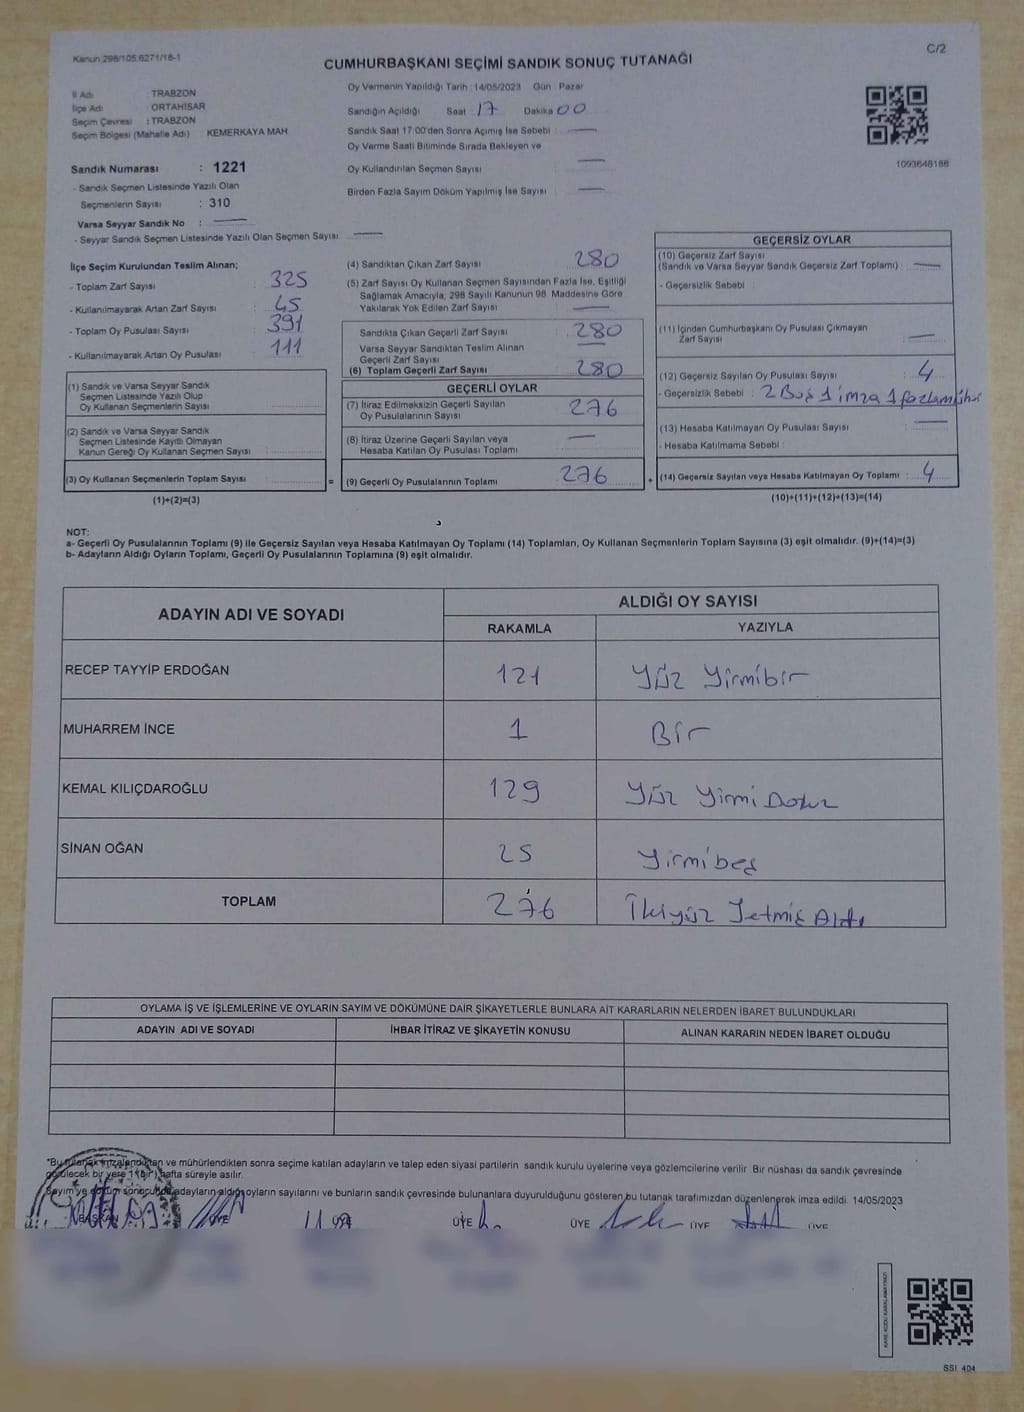 Kanun 298/105.6271/18-1
C/2
CUMHURBAŞKANI SEÇİMİ SANDIK SONUÇ TUTANAĞI
İl Adı : TRABZON
İlçe Adı : ORTAHİSAR
Seçim Çevresi : TRABZON
Seçim Bölgesi (Mahalle Adı) KEMERKAYA MAH
Sandık Numarası : 1221
- Sandık Seçmen Listesinde Yazılı Olan
Seçmenlerin Sayısı : 310
Varsa Seyyar Sandık No :
- Seyyar Sandık Seçmen Listesinde Yazılı Olan Seçmen Sayısı
Oy Vermenin Yapıldığı Tarih : 14/05/2023 Gün : Pazar
Sandığın Açıldığı Saat : 17 Dakika 00
Sandık Saat 17:00'den Sonra Açılmış İse Sebebi :
Oy Verme Saati Bitiminde Sırada Bekleyen ve
Oy Kullandırılan Seçmen Sayısı :
Birden Fazla Sayım Döküm Yapılmış İse Sayısı :
1093648186
İlçe Seçim Kurulundan Teslim Alınan;
- Toplam Zarf Sayısı : 325
- Kullanılmayarak Artan Zarf Sayısı : 45
- Toplam Oy Pusulası Sayısı : 391
- Kullanılmayarak Artan Oy Pusulası : 111
(1) Sandık ve Varsa Seyyar Sandık
Seçmen Listesinde Yazılı Olup
Oy Kullanan Seçmenlerin Sayısı :
(2) Sandık ve Varsa Seyyar Sandık
Seçmen Listesinde Kayıtlı Olmayan
Kanun Gereği Oy Kullanan Seçmen Sayısı :
(3) Oy Kullanan Seçmenlerin Toplam Sayısı :
(1)+(2)=(3)
(4) Sandıktan Çıkan Zarf Sayısı : 280
(5) Zarf Sayısı Oy Kullanan Seçmen Sayısından Fazla İse, Eşitliği
Sağlamak Amacıyla; 298 Sayılı Kanunun 98. Maddesine Göre
Yakılarak Yok Edilen Zarf Sayısı :
Sandıkta Çıkan Geçerli Zarf Sayısı : 280
Varsa Seyyar Sandıktan Teslim Alınan
Geçerli Zarf Sayısı :
(6) Toplam Geçerli Zarf Sayısı : 280
GEÇERLİ OYLAR
(7) İtiraz Edilmeksizin Geçerli Sayılan
Oy Pusulalarının Sayısı : 276
(8) İtiraz Üzerine Geçerli Sayılan veya
Hesaba Katılan Oy Pusulası Toplamı :
(9) Geçerli Oy Pusulalarının Toplamı : 276
GEÇERSİZ OYLAR
(10) Geçersiz Zarf Sayısı
(Sandık ve Varsa Seyyar Sandık Geçersiz Zarf Toplamı) :
- Geçersizlik Sebebi :
(11) İçinden Cumhurbaşkanı Oy Pusulası Çıkmayan
Zarf Sayısı :
(12) Geçersiz Sayılan Oy Pusulası Sayısı : 4
- Geçersizlik Sebebi : 2 Boş 1 imza 1
(13) Hesaba Katılmayan Oy Pusulası Sayısı :
- Hesaba Katılmama Sebebi :
(14) Geçersiz Sayılan veya Hesaba Katılmayan Oy Toplamı : 4
(10)+(11)+(12)+(13)=(14)
NOT:
a- Geçerli Oy Pusulalarının Toplamı (9) ile Geçersiz Sayılan veya Hesaba Katılmayan Oy Toplamı (14) Toplamları, Oy Kullanan Seçmenlerin Toplam Sayısına (3) eşit olmalıdır. (9)+(14)=(3)
b- Adayların Aldığı Oyların Toplamı, Geçerli Oy Pusulalarının Toplamına (9) eşit olmalıdır.
ADAYIN ADI VE SOYADI
ALDIĞI OY SAYISI
RAKAMLA YAZIYLA
RECEP TAYYİP ERDOĞAN 121 Yüz Yirmibir
MUHARREM İNCE 1 Bir
KEMAL KILIÇDAROĞLU 129 Yüz Yirmi Dokuz
SİNAN OĞAN 25 Yirmibeş
TOPLAM 276 İkiyüz Yetmiş Altı
OYLAMA İŞ VE İŞLEMLERİNE VE OYLARIN SAYIM VE DÖKÜMÜNE DAİR ŞİKAYETLERLE BUNLARA AİT KARARLARIN NELERDEN İBARET BULUNDUKLARI
ADAYIN ADI VE SOYADI İHBAR İTİRAZ VE ŞİKAYETİN KONUSU ALINAN KARARIN NEDEN İBARET OLDUĞU
*Bu tutanak imzalandıktan ve mühürlendikten sonra seçime katılan adayların ve talep eden siyasi partilerin sandık kurulu üyelerine veya gözlemcilerine verilir. Bir nüshası da sandık çevresinde
görülecek bir yere 1 (bir) hafta süreyle asılır.
Sayım ve döküm sonucunda adayların aldığı oyların sayılarını ve bunların sandık çevresinde bulunanlara duyurulduğunu gösteren bu tutanak tarafımızdan düzenlenerek imza edildi. 14/05/2023
BAŞKAN ÜYE ÜYE ÜYE ÜYE ÜYE ÜYE
SSI 404